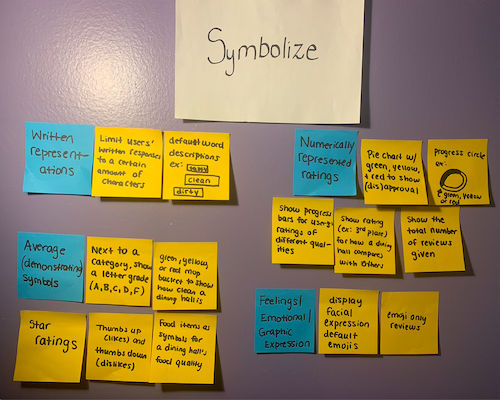 Symbolize
Written
represent-
ations
Limit users'
written responses
to a certain
amount of
characters
default word
descriptions
ex:
clean
dirty
Numerically
represented
ratings
Pie chart w/
green, yellow,
+ red to show
(dis)approval
progress circle
ex:
green, yellow
or red
Show progress
bars for users'
ratings of
different qual-
ities
Show rating
(ex: 3rd place)
for how a dining
hall compares
with others
Show the
total number
of reviews
given
Average
(demonstrating)
symbols
Next to a
category, show
a letter grade
(A, B, C, D, F)
green, yellow,
or red mop
bucket to show
how clean a
dining hall is
Star
ratings
Thumbs up
(likes) and
thumbs down
(dislikes)
Food items as
symbols for
a dining hall's
food quality
Feelings/
Emotional/
Graphic
Expression
display
facial
expression
default
emojis
emoji only
reviews